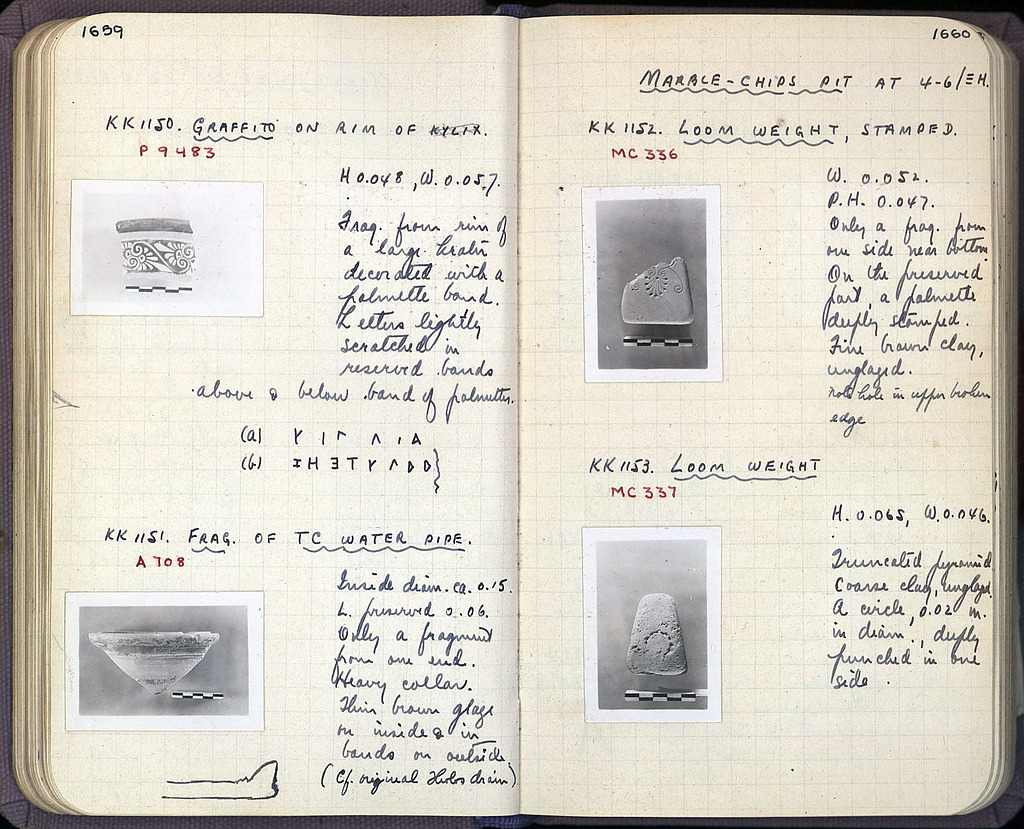 1659
KK 1150. GRAFFITO ON RIM OF KYLIX.
P 9483
H 0.048, W. 0.057.
Frag. from rim of
a large krater
decorated with a
palmette band.
Letters lightly
scratched in
reserved bands
above & below band of palmettes.
(a) Υ Ι Γ Λ Ι Δ
(b)
KK 1151. FRAG. OF TC WATER PIPE.
A 708
Inside diam. ca. 0.15.
L. preserved 0.06.
Only a fragment
from one end.
Heavy collar.
Thin brown glaze
on inside & in
bands on outside.
(Cf. original Tholos drain)
1660
MARBLE-CHIPS PIT AT 4-6/ΞH.
KK 1152. LOOM WEIGHT, STAMPED.
MC 336
W. 0.052.
P.H. 0.047.
Only a frag. from
one side near bottom
On the preserved
part, a palmette
deeply stamped.
Fine brown clay,
unglazed.
note hole in upper broken
edge
KK 1153. LOOM WEIGHT
MC 337
H. 0.065, W. 0.046.
Truncated pyramid
Coarse clay, unglazed.
A circle, 0.02 m.
in diam., deeply
punched in one
side.